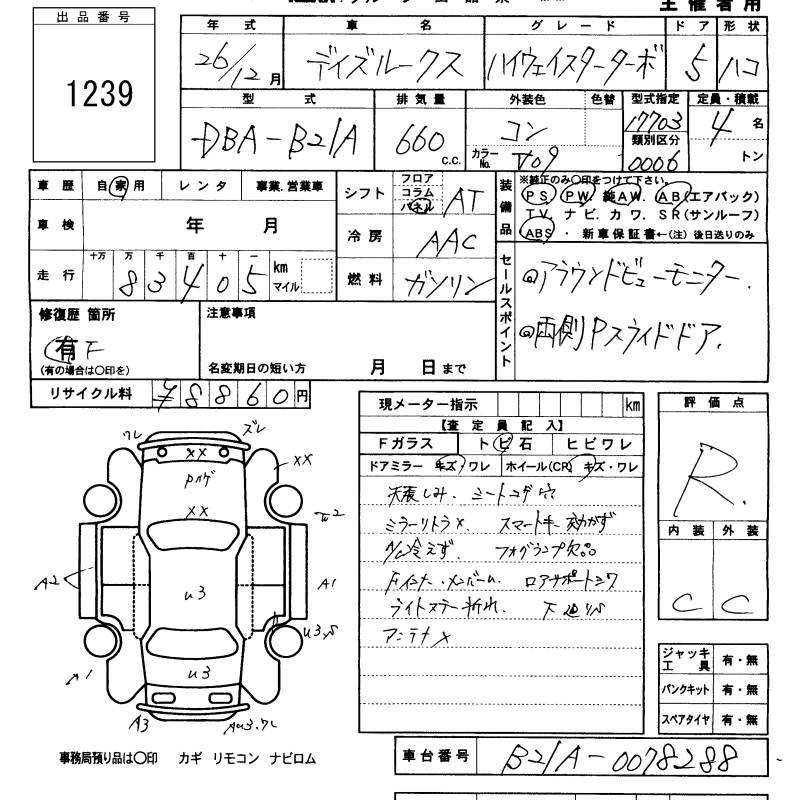 主催者用
出品番号
1239
年式 車名 グレード ドア 形状
26/12月 デイズルークス ハイウェイスターターボ 5 ハコ
型式 排気量 外装色 色替 型式指定 定員・積載
DBA-B21A 660 c.c. コン 17703 4 名
カラーNo. V09 類別区分 0006 トン
車歴 自家用 レンタ 事業.営業車
車検 年 月
走行 十万 万 千 百 十 一
83405 km マイル
シフト フロア コラム パネル AT
冷房 AAC
燃料 ガソリン
装備品 ※純正のみ〇印をつけて下さい。
PS. PW. 純AW. AB(エアバック)
TV. ナビ. カワ. SR(サンルーフ)
ABS ・ 新車保証書←(注)後日送りのみ
セールスポイント
◎アラウンドビューモニター.
◎両側Pスライドドア.
修復歴 箇所
有 F
(有の場合は〇印を)
注意事項
名変期日の短い方 月 日まで
リサイクル料 ¥8860円
現メーター指示 km
【査定員記入】
Fガラス トビ石 ヒビワレ
ドアミラー キズ/ワレ ホイール(CR) キズ・ワレ
天張しみ. シートコゲ穴
ミラーリトラ×. スマートキー効かず
A/C冷えず. フォグランプ欠品
Fインナー.メンバーm. ロアサポートシワ
ライトステー折れ.
アンテナ×
評価点
R.
内装 外装
C C
ワレ ズレ
××
××
××
A2
A1
u3
u3.S
u3
A3
ジャッキ工具 有・無
パンクキット 有・無
スペアタイヤ 有・無
事務局預り品は〇印 カギ リモコン ナビロム
車台番号 B21A-0078288